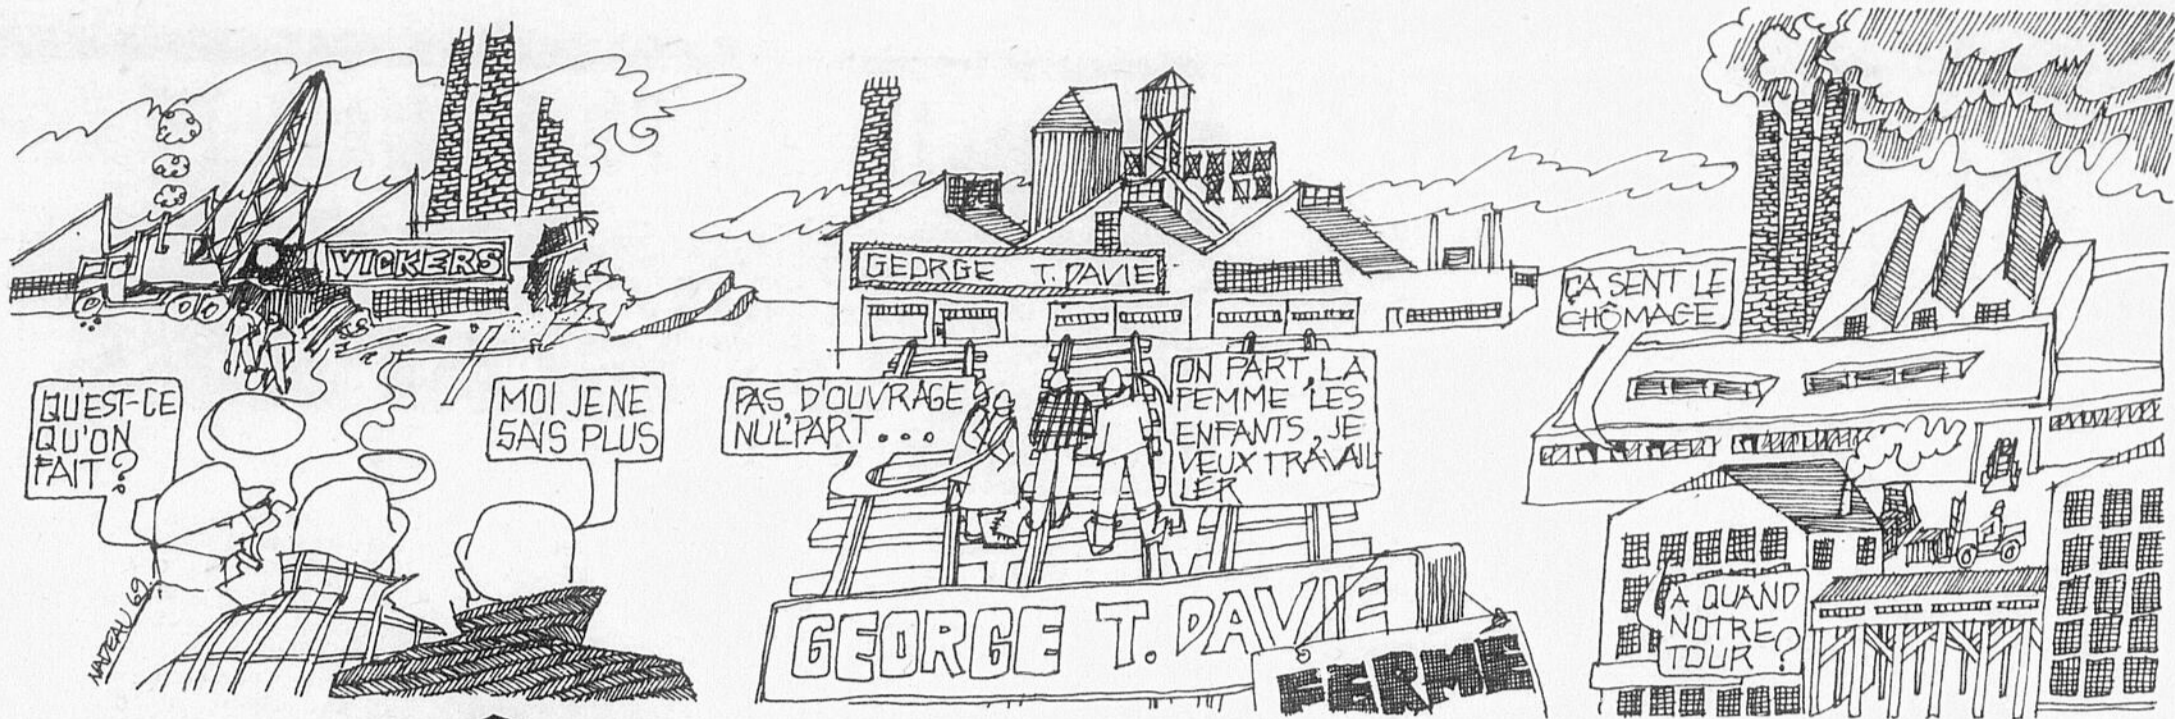 VICKERS
QU'EST-CE
QU'ON
FAIT?
MOI JE NE
SAIS PLUS
NADEAU 69
GEORGE T. DAVIE
PAS D'OUVRAGE
NUL'PART...
ON PART, LA
FEMME, LES
ENFANTS, JE
VEUX TRAVAIL
LER
GEORGE T. DAVIE
FERMÉ
ÇA SENT LE
CHÔMAGE
A QUAND
NOTRE
TOUR?